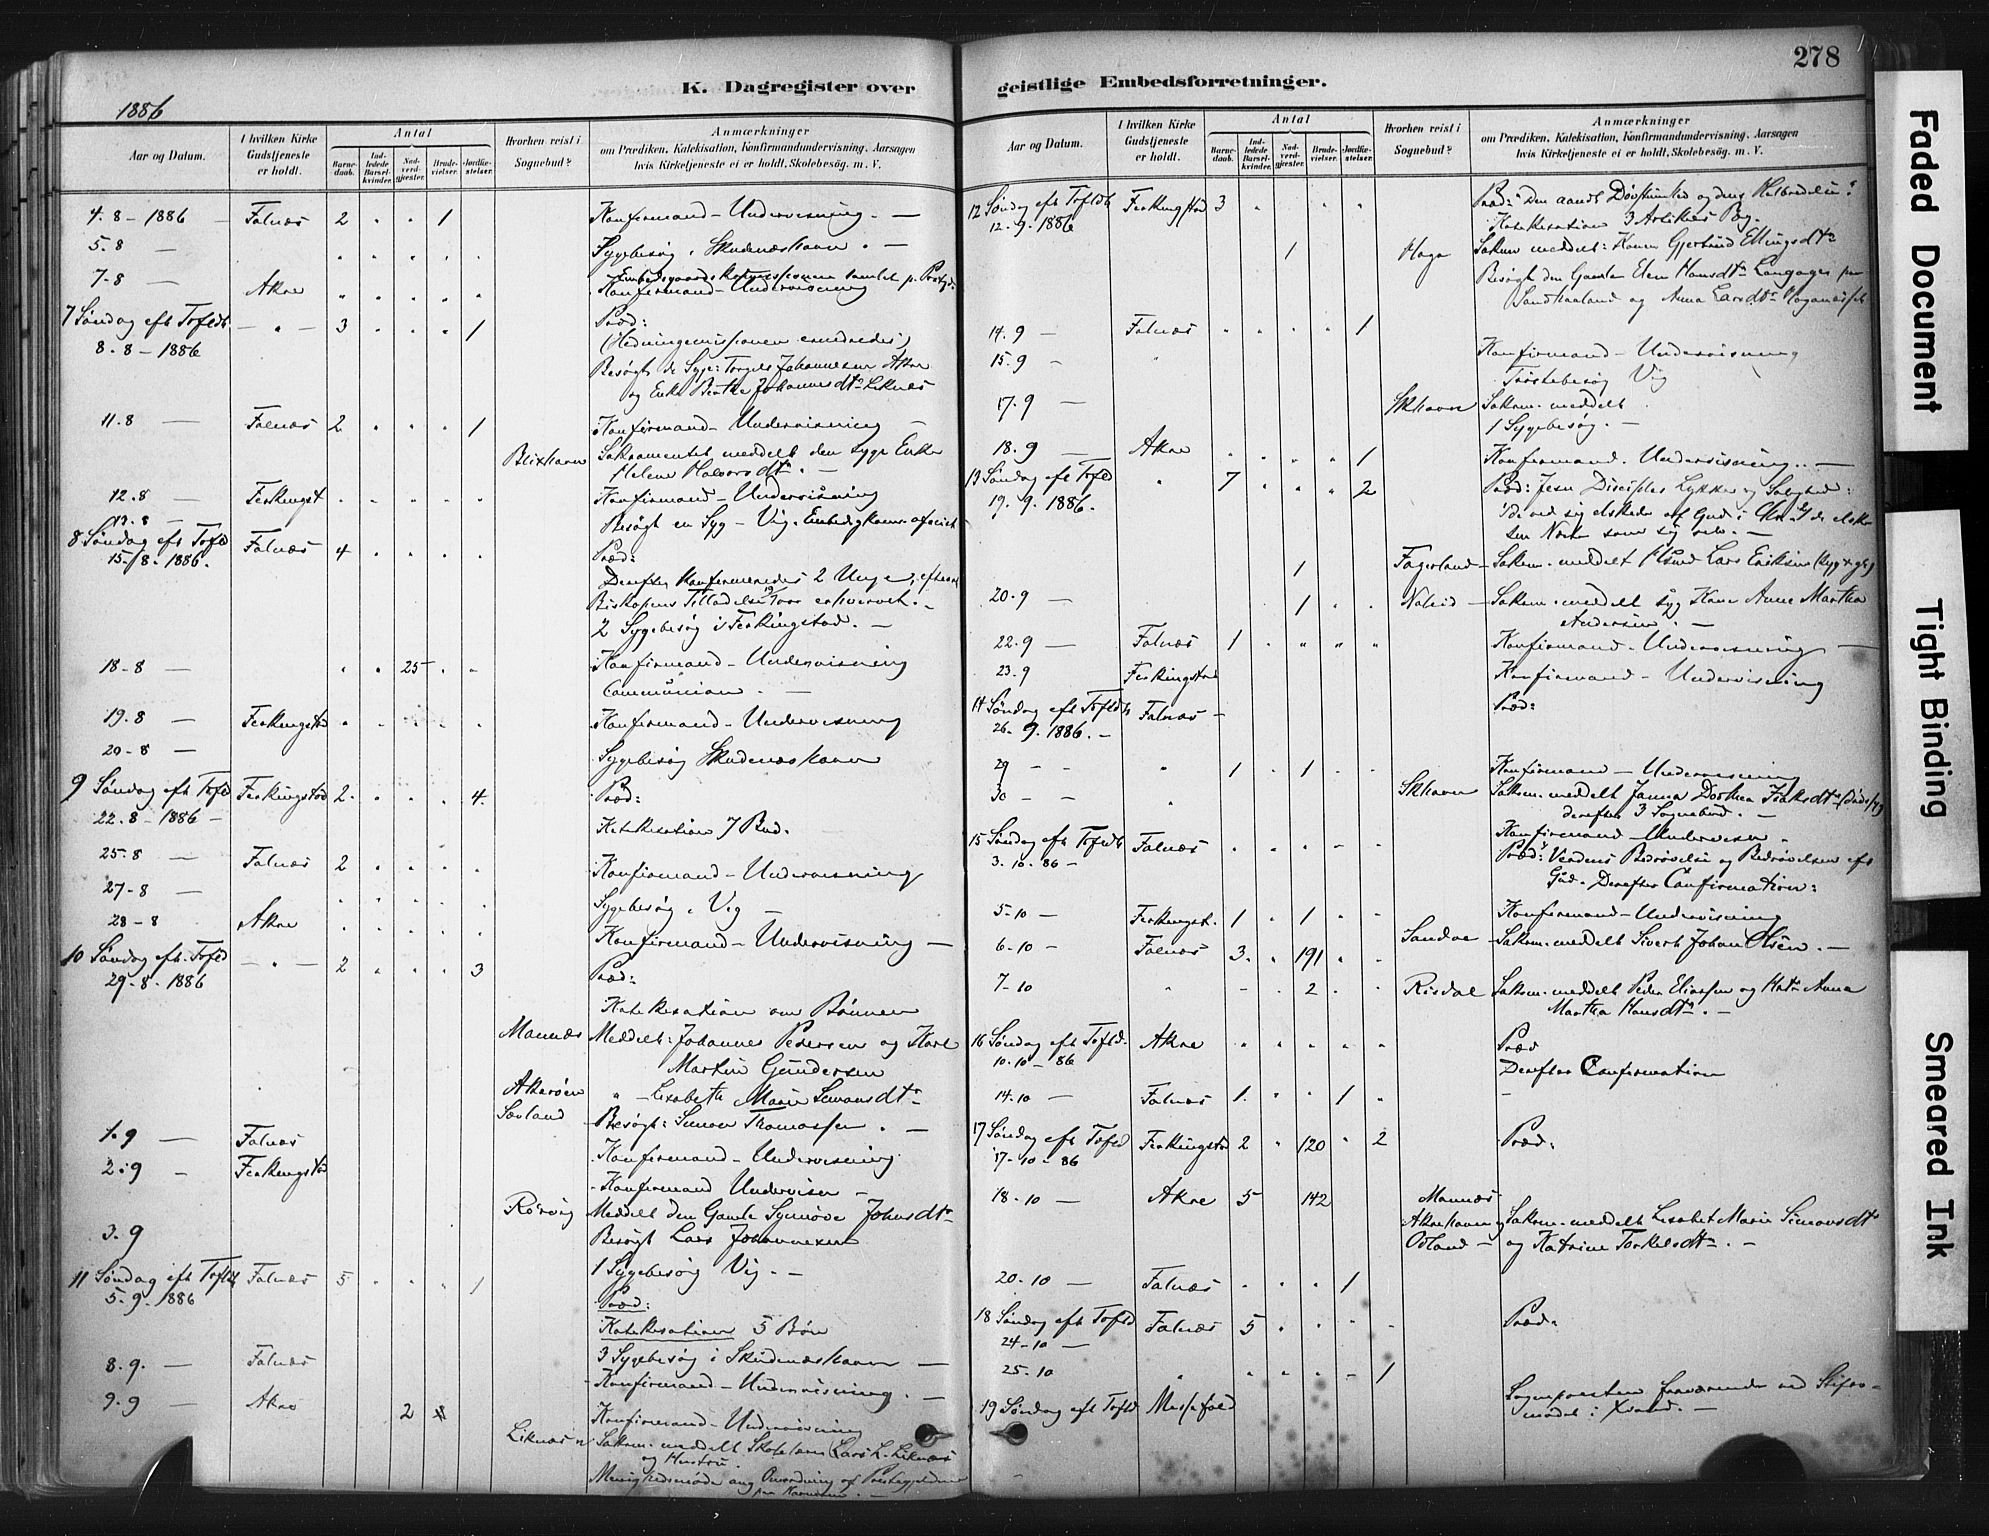 278
K. Dagregister over
geistlige Embedsforretninger.
1886
Aar og Datum.
I hvilken Kirke Gudstjeneste er holdt.
Antal
Barnedaab.
Indledede Barselkvinder.
Nadverdgjester.
Brudevielser.
Jordfæstelser.
Hvorhen reist i Sognebud?
Anmærkninger
om Prædiken, Katekisation, Konfirmandundervisning, Aarsagen
hvis Kirketjeneste ei er holdt, Skolebesøg. m. V.
4.8 - 1886 - Falnæs 2 " " " 1 Konfirmand-Undervisning. -
5.8 - " " " " " Sygebesøg. Skudenæshavn. -
7-8 - Akre " " " " " Konfirmand-Undervisning
7 Søndag eft Trefldh - " - 3 " " " 1 Præd:
8.8 - 1886 (Hedningemissionen
Besøgt de Syge: Torgels Johannesen Akre
og Enke Berthe Johannesdtr Liknæs
11.8 - Falnæs 2 " " " 1 Konfirmand-Undervisning -
Blixhavn Sakramentet meddelt den syge Enke
Helene Halvorsdtr. -
12.8 - Ferkingst " " " " " Konfirmand-Undervisning
13.8 - Besøgt en Syg - Vig.
8 Søndag eft Trefld Falnæs 4 " " " "
15/8. 1886. Præd:
Derefter Konfirmeredes 2 Unge,
Biskopens Tilladelse
2 Sygebesøg i Ferkingstad. -
18-8 - " " 25 " " Konfirmand-Undervisning
Communion. -
19.8 - Ferkingstad " " " " " Konfirmand-Undervisning
20-8 - Sygebesøg Skudenæshavn
9 Søndag eft Trefld Ferkingstad 2 " " " 4. Præd:
22.8 - 1886 - Katekisation 7 Bud.
25.8 - Falnæs 2 " " " " Konfirmand-Undervisning
27-8 - " " " " " Sygebesøg. Vig -
28-8 Akre " " " " " Konfirmand-Undervisning -
10 Søndag eft. Trefld - " - 2 " " " 3 Præd:
29.8. 1886
Katekisation om Bønnen
Mannæs Meddelt: Johannes Pedersen og Karl
Martin Gundersen
Akerøen " - Lisabeth Marie Simonsdtr
Sævland Besøgt: Simon Thomassen. -
1.9 - Falnæs Konfirmand-Undervisning
2.9 - Ferkingstad Konfirmand Underviser -
3.9 Rørvig Meddelt den Gamle Synnøve Johnsdtr
Besøgt Lars Johannesen
1 Sygebesøg Vig. -
11 Søndag eft Trefldh Falnæs 5 " " " 1
5.9. 1886 Præd:
Katekisation 5 Bøn
3 Sygebesøg i Skudenæshavn -
8.9. - Falnæs Konfirmand-Undervisning. -
9.9 - Akre 2 Konfirmand-Undervisning
Liknæs Sakrm. meddelt Lars L. Liknæs
og Hustru.
Menighedsmøde ang
Aar og Datum.
I hvilken Kirke Gudstjeneste er holdt.
Antal
Barnedaab.
Indledede Barselkvinder.
Nadverdgjester.
Brudevielser.
Jordfæstelser.
Hvorhen reist i Sognebud?
Anmærkninger
om Prædiken, Katekisation, Konfirmandundervisning, Aarsagen
hvis Kirketjeneste ei er holdt, Skolebesøg. m. V.
12 Søndag eft Trefldh Ferkingstad 3 " " " "
12.9. 1886 Katekisation 3 Artikel
1 Haga Sakrm meddelt: Konen Gjertrud Ellingsdtr
Besøgt den Gamle Elen Hansdtr
Sandhaaland og Anna Larsdtr
14.9 - Falnæs " " " " 1
15.9 - " Konfirmand-Undervisning
Trøstebesøg Vig
17.9 - Skhavn Sakrm. meddelt
1 Sygebesøg. -
18.9 - Akre " " " " 1 Konfirmand. Undervisning. -
13 Søndag eft Trefld " 7 " " " 2 Præd: Jesu Disciples Lykke og Salighed:
19.9. 1886. elskede af Gud i
sin Næste som sig selv. -
1 Fagerland Sakrm. meddelt Lars Eriksen
20.9 - 1 " " Sakrm. meddelt syg Kone Anne Martha
Andersen. -
22.9 - Falnæs 1 " " " " Konfirmand-Undervisning -
23.9 Ferkingstad Konfirmand-Undervisning
14 Søndag eft Trefldh Falnæs - Præd:
26.9. 1886. -
29 - - " 1 " 1 " " Konfirmand-Undervisning
30 - - " Skhavn Sakrm. meddelt
derefter 3 Sognebud. -
Konfirmand-Underviser.
15 Søndag eft Trefldh Falnæs " " " " " Præd: Verdens Bedrøvelse og Bedrøvelsen eft
3.10.86 - Gud. Derefter Confirmation:
5.10 - Ferkingst. 1 " 1 " " Konfirmand-Undervisning
6.10 - Falnæs 3. " 191 " " Sandve Sakrm. meddelt Sivert Johan Olsen. -
7-10 " " " 2 " " Risdal Sakrm. meddelt Peder Eliassen og Anna
Martha Hansdtr. -
16 Søndag eft Trefld. Akre " " " " " Præd
10.10 - 86 Derefter Confirmation
14.10 - Falnæs 1. " " 1 " -
17 Søndag eft Trefld Ferkingstad 2 " 120 " 2 Præd:
17-10-86
18-10 - Akre 5 142 Mannæs
Akrehavn og Sakrm. meddelt Lisabet Marie Simonsdtr
Odland - og Katrine Torkelsdtr. -
20-10 - Falnæs " " " 1
18 Søndag eft Trefld Falnæs 5 " " " " Præd.
24-10 -
25.10 " " " " " 1
19 Søndag eft Trefld Messefald Sognepresten fraværende ved Stifts-
mødet i Xsand. -
Faded Document
Tight Binding
Smeared Ink